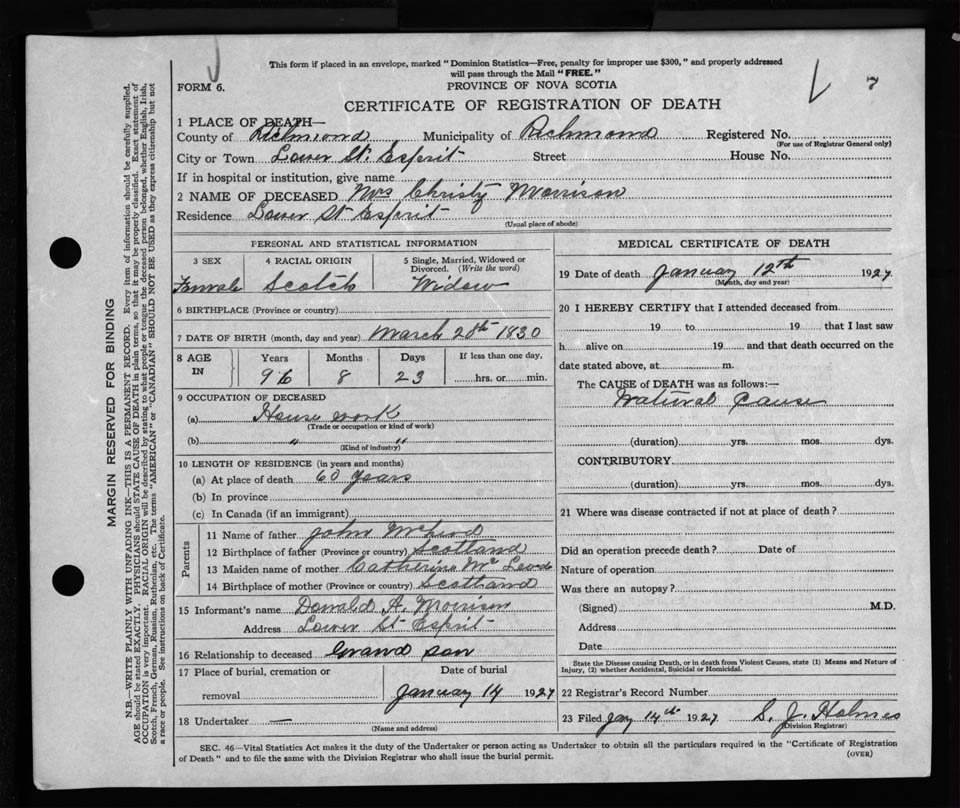 This form if placed in an envelope, marked "Dominion Statistics—Free, penalty for improper use $300," and properly addressed
will pass through the Mail "FREE."
FORM 6.
PROVINCE OF NOVA SCOTIA
CERTIFICATE OF REGISTRATION OF DEATH
1 PLACE OF DEATH—
County of Richmond Municipality of Richmond Registered No.
(For use of Registrar General only)
City or Town Lower St. Esprit Street House No.
If in hospital or institution, give name
2 NAME OF DECEASED Mrs Christy Morrison
Residence Lower St Esprit
(Usual place of abode)
PERSONAL AND STATISTICAL INFORMATION
3 SEX 4 RACIAL ORIGIN 5 Single, Married, Widowed or
Divorced. (Write the word)
Female Scotch Widow
6 BIRTHPLACE (Province or country)
7 DATE OF BIRTH (month, day and year) March 20th 1830
8 AGE IN Years Months Days If less than one day,
96 8 23 hrs. or min.
9 OCCUPATION OF DECEASED
(a) House work
(Trade or occupation or kind of work)
(b) " "
(Kind of industry)
10 LENGTH OF RESIDENCE (in years and months)
(a) At place of death 60 years
(b) In province
(c) In Canada (if an immigrant)
Parents
11 Name of father John
12 Birthplace of father (Province or country) Scotland
13 Maiden name of mother Catherine
14 Birthplace of mother (Province or country) Scotland
15 Informant's name Donald A. Morrison
Address Lower St Esprit
16 Relationship to deceased Grand son
17 Place of burial, cremation or Date of burial
removal January 14 1927
18 Undertaker —
(Name and address)
MEDICAL CERTIFICATE OF DEATH
19 Date of death January 12th 1927
(Month, day and year)
20 I HEREBY CERTIFY that I attended deceased from
19 to 19 that I last saw
h alive on 19 and that death occurred on the
date stated above, at m.
The CAUSE of DEATH was as follows:—
Natural Cause
(duration) yrs. mos. dys.
CONTRIBUTORY
(duration) yrs. mos. dys.
21 Where was disease contracted if not at place of death?
Did an operation precede death? Date of
Nature of operation
Was there an autopsy?
(Signed) M.D.
Address
Date
State the Disease causing Death, or in death from Violent Causes, state (1) Means and Nature of
Injury, (2) whether Accidental, Suicidal or Homicidal.
22 Registrar's Record Number
23 Filed Jany 14th 1927 S. J. Holmes
(Division Registrar)
SEC. 46—Vital Statistics Act makes it the duty of the Undertaker or person acting as Undertaker to obtain all the particulars required in the "Certificate of Registration
of Death" and to file the same with the Division Registrar who shall issue the burial permit.
(OVER)
MARGIN RESERVED FOR BINDING
N.B.—WRITE PLAINLY WITH UNFADING INK—THIS IS A PERMANENT RECORD. Every item of information should be carefully supplied.
AGE should be stated EXACTLY. PHYSICIANS should STATE CAUSE OF DEATH in plain terms, so that it may be properly classified. Exact statement of
OCCUPATION is very important. RACIAL ORIGIN will be described by stating to what people or tongue the deceased person belonged, whether English, Irish,
Scotch, French, German, Russian, Ruthenian, etc. The terms "AMERICAN" or "CANADIAN" SHOULD NOT BE USED as they express citizenship but not
a race or people. See instructions on back of Certificate.